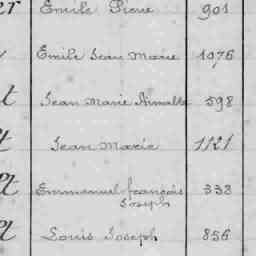 er Emile Pierre 901
Emile Jean Marie 1076
t Jean Marie Aimable 598
t Jean Marie 1121
et Emmanuel françois 338
Joseph
et Louis Joseph 856